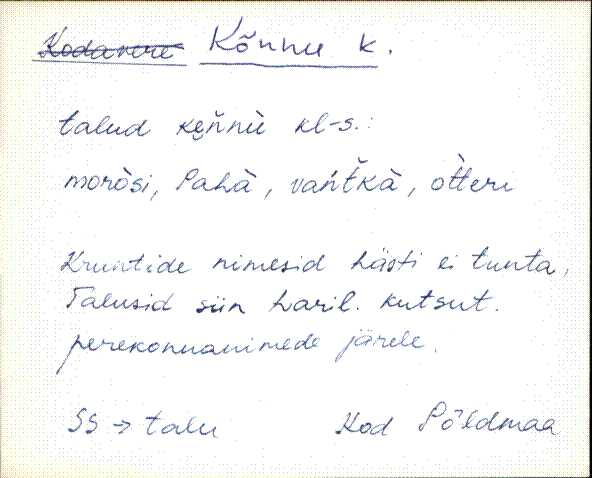 Kodavere Kõnnu k.
talud ke̮ńnù kl-s.:
moròsi, Pahà, vańt̆kà, òtteri
Kruntide nimesid hästi ei tunta,
Talusid siin haril. kutsut.
perekonnanimede järele.
SS → talu Kod Põldmaa